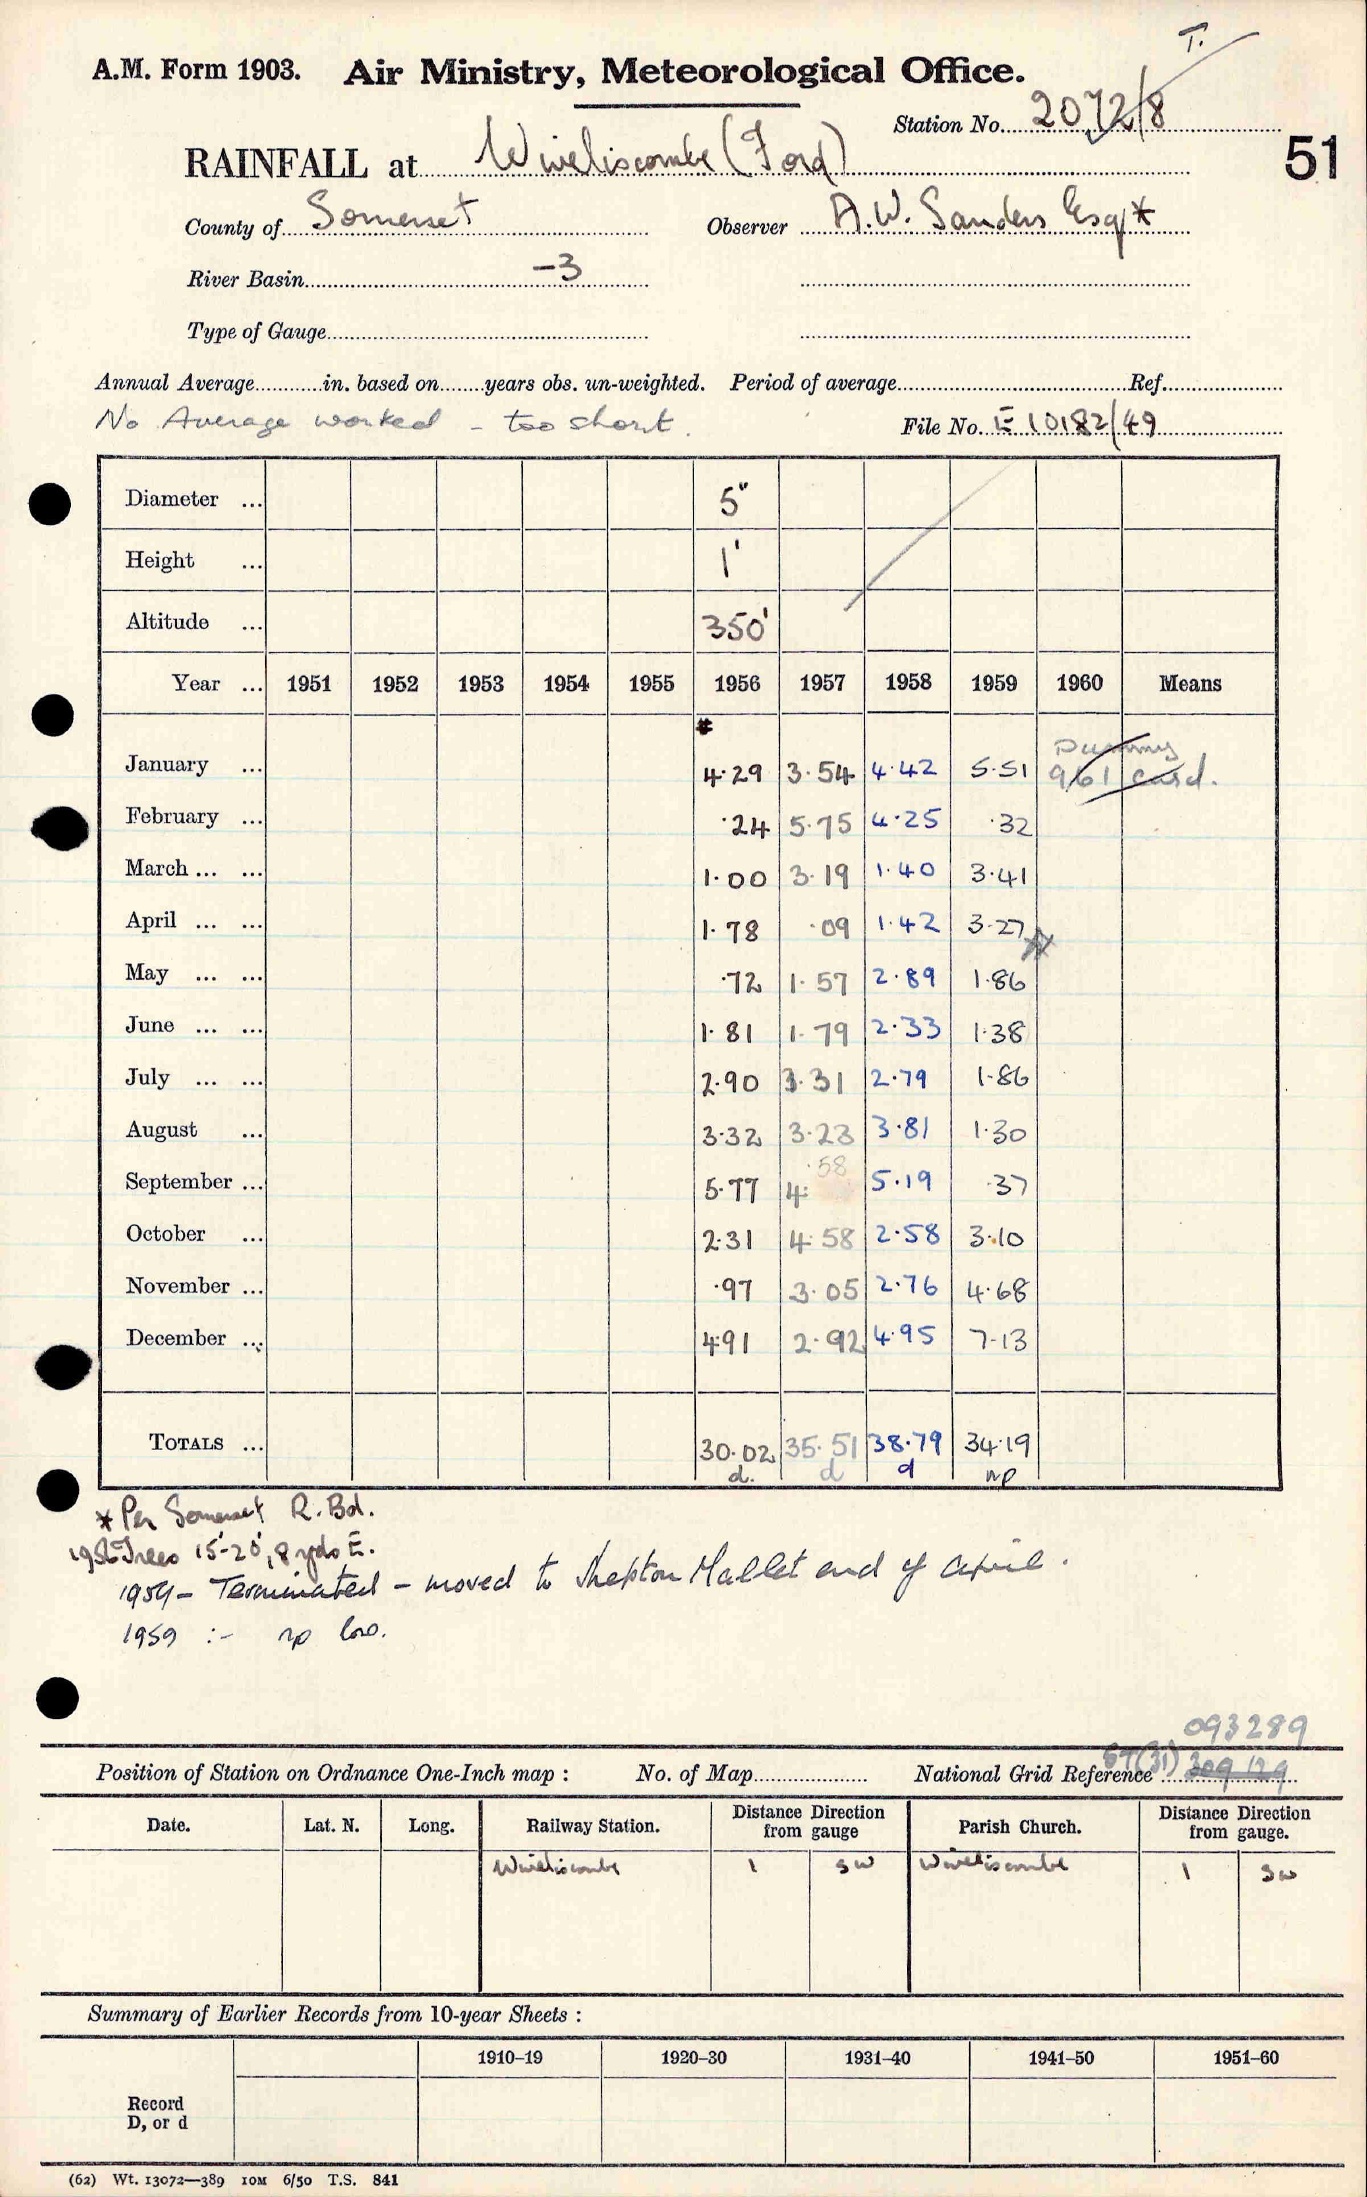 T.
A.M. Form 1903. Air Ministry, Meteorological Office.
Station No. 2072/8
51
RAINFALL at Wiveliscombe (Ford)
County of Somerset Observer A.W. Sanders Esq*
River Basin -3
Type of Gauge
Annual Average in. based on years obs. un-weighted. Period of average Ref.
No Average worked - too short. File No. E 10182/49
Diameter ... 5"
Height ... 1'
Altitude ... 350'
Year ... 1951 1952 1953 1954 1955 1956 1957 1958 1959 1960 Means
*
Dummy
January ... 4.29 3.54 4.42 5.51 961 card.
February ... .24 5.75 4.25 .32
March ... ... 1.00 3.19 1.40 3.41
April ... ... 1.78 .09 1.42 3.27
May ... ... .72 1.57 2.89 1.86
June ... ... 1.81 1.79 2.33 1.38
July ... ... 2.90 3.31 2.79 1.86
August ... 3.32 3.23 3.81 1.30
September ... 5.77 4.58 5.19 .37
October ... 2.31 4.58 2.58 3.10
November ... .97 3.05 2.76 4.68
December ... 4.91 2.92 4.95 7.13
TOTALS ... 30.02 35.51 38.79 34.19
d. d d np
*Per Somerset R.Bd.
1956 Trees 15'-20', 8 yds E.
1959 - Terminated - moved to Shepton Mallet end of April.
1959 :- np
093289
Position of Station on Ordnance One-Inch map : No. of Map National Grid Reference ST(31) 309 129
Date. Lat. N. Long. Railway Station. Distance Direction from gauge Parish Church. Distance Direction from gauge.
Wiveliscombe 1 SW Wiveliscombe 1 SW
Summary of Earlier Records from 10-year Sheets :
1910–19 1920–30 1931–40 1941–50 1951–60
Record
D, or d
(62) Wt. 13072—389 10M 6/50 T.S. 841